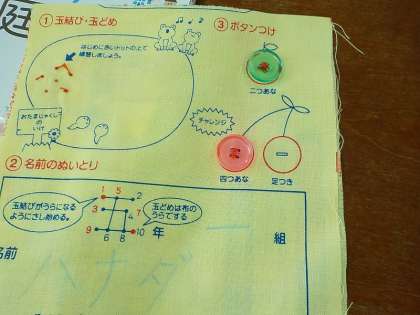 ①玉結び・玉どめ
はじめに赤いドットの上で
練習しましょう。
おたまじゃくしの
いけ
③ボタンつけ
二つあな
チャレンジ
四つあな
足つき
②名前のぬいとり
玉結びがうらになる
ようにさし始める。
1 5
2
3
7
4
9
6 8
10
玉どめは布の
うらでする
年
組
名前
ハナダ